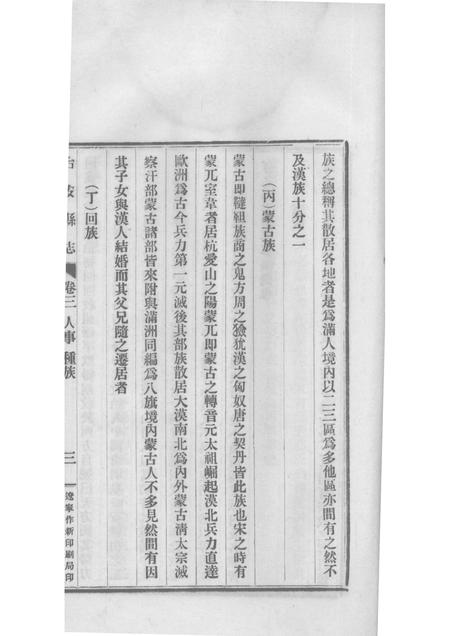 族之總稱其散居各地者是爲滿人境內以二三區爲多他區亦間有之然不
及漢族十分之一
（丙）蒙古族
蒙古即韃靼族商之鬼方周之獫狁漢之匈奴唐之契丹皆此族也宋之時有
蒙兀室韋者居杭愛山之陽蒙兀即蒙古之轉音元太祖崛起漠北兵力直達
歐洲爲古今兵力第一元滅後其部族散居大漠南北爲內外蒙古淸太宗滅
察汗部蒙古諸部皆來附與滿洲同編爲八旗境內蒙古人不多見然間有因
其子女與漢人結婚而其父兄隨之遷居者
（丁）回族
縣志 卷三 人事 種族 三 遼寧作新印刷局印